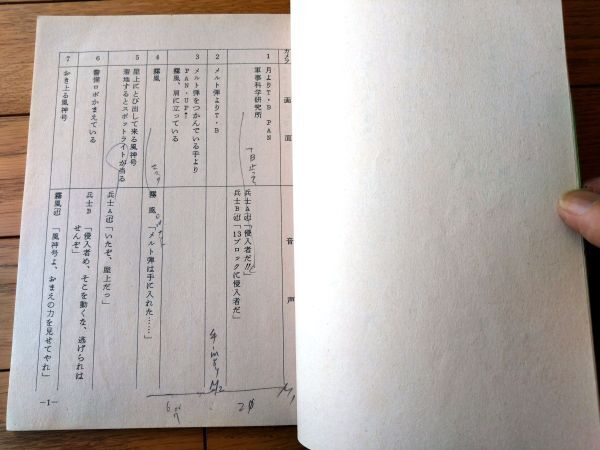 カメラ
画面
音声
1
月よりT・B PAN
軍事科学研究所
兵士A 「侵入者だ!!」
兵士B 「13ブロックに侵入者だ」
2
メルト弾よりT・B
3
メルト弾をつかんでいる手より
PAN・UP!
霧風、肩に立っている
4
霧風
霧風 「メルト弾は手に入れた……」
5
屋上にとび出して来る風神号
着地するとスポットライトが当る
兵士A 「いたぞ、屋上だっ」
6
警備ロボかまえている
兵士B 「侵入者め、そこを動くな、逃げられは
せんぞ」
7
おき上る風神号
霧風 「風神号よ、おまえの力を見せてやれ」
—1—